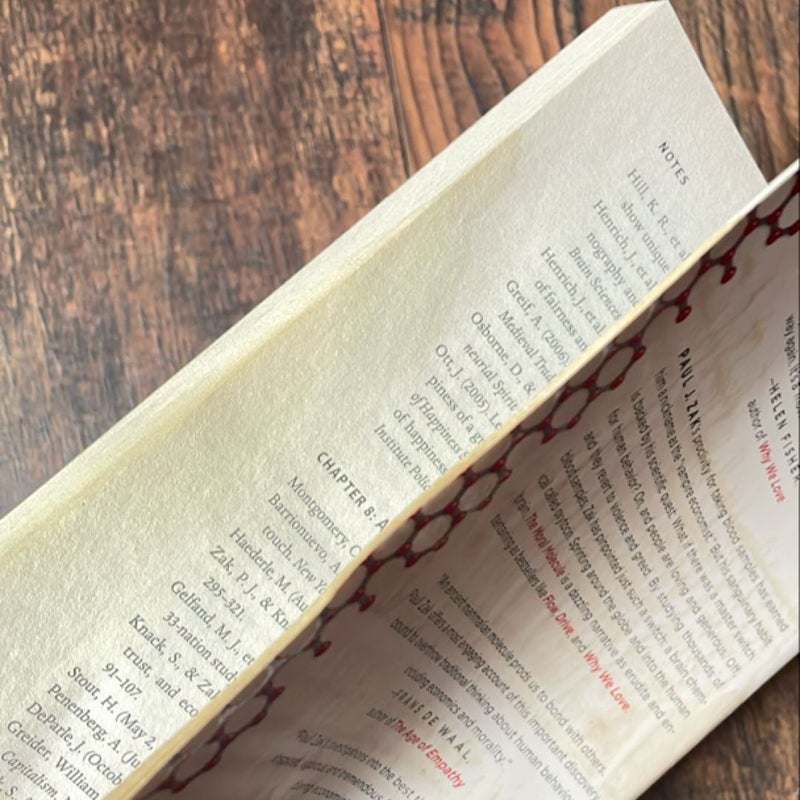 NOTES
Hill, K. R., et al
show unique
Henrich, J., et al
nography and
Brain Sciences
Henrich, J., et al
of fairness an
Greif, A. (2006)
Medieval Trad
Osborne, D. &
neurial Spirit
Ott, J. (2005). Le
piness of a g
of Happiness S
of happiness
Institute Polic
CHAPTER 8: A
Montgomery, C
Barrionuevo, A
touch. New Y
Haederle, M. (Au
Zak, P. J., & Kn
295–321.
Gelfand, M. J., et
33-nation stud
Knack, S., & Zak
trust, and eco
91–107.
Stout, H. (May 2,
Penenberg, A. (Ju
DeParle, J. (Octob
Greider, William
Capitalism. N
k, S., &
–HELEN FISHER
author of Why We Love
PAUL J. ZAK's proclivity for taking blood samples has earned
him a nickname as the "vampire economist." But his sanguinary habit
is backed by his scientific quest: What if there was a master switch
for human behavior? On, and people are loving and generous. Off,
and they revert to violence and greed. By studying thousands of
blood samples, Zak has pinpointed just such a switch: a brain chem-
ical called oxytocin. Sprinting around the globe and into the human
brain, The Moral Molecule is a dazzling narrative as erudite and en-
tertaining as bestsellers like Flow, Drive, and Why We Love.
"An ancient mammalian molecule prods us to bond with others.
Paul Zak offers a most engaging account of this important discovery,
bound to overthrow traditional thinking about human behavior,
including economics and morality."
–FRANS DE WAAL,
author of The Age of Empathy
"Paul Zak's investigations into the best th